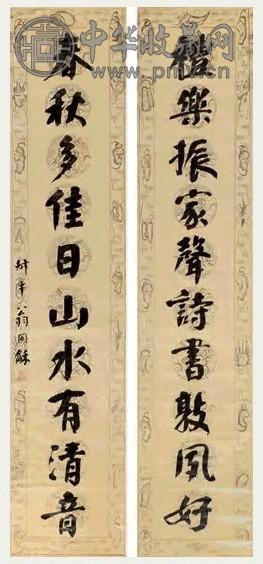 中华收藏网
www.pmv.cn
禮樂振家聲詩書敦夙好
春秋多佳日山水有清音
叔平翁同龢